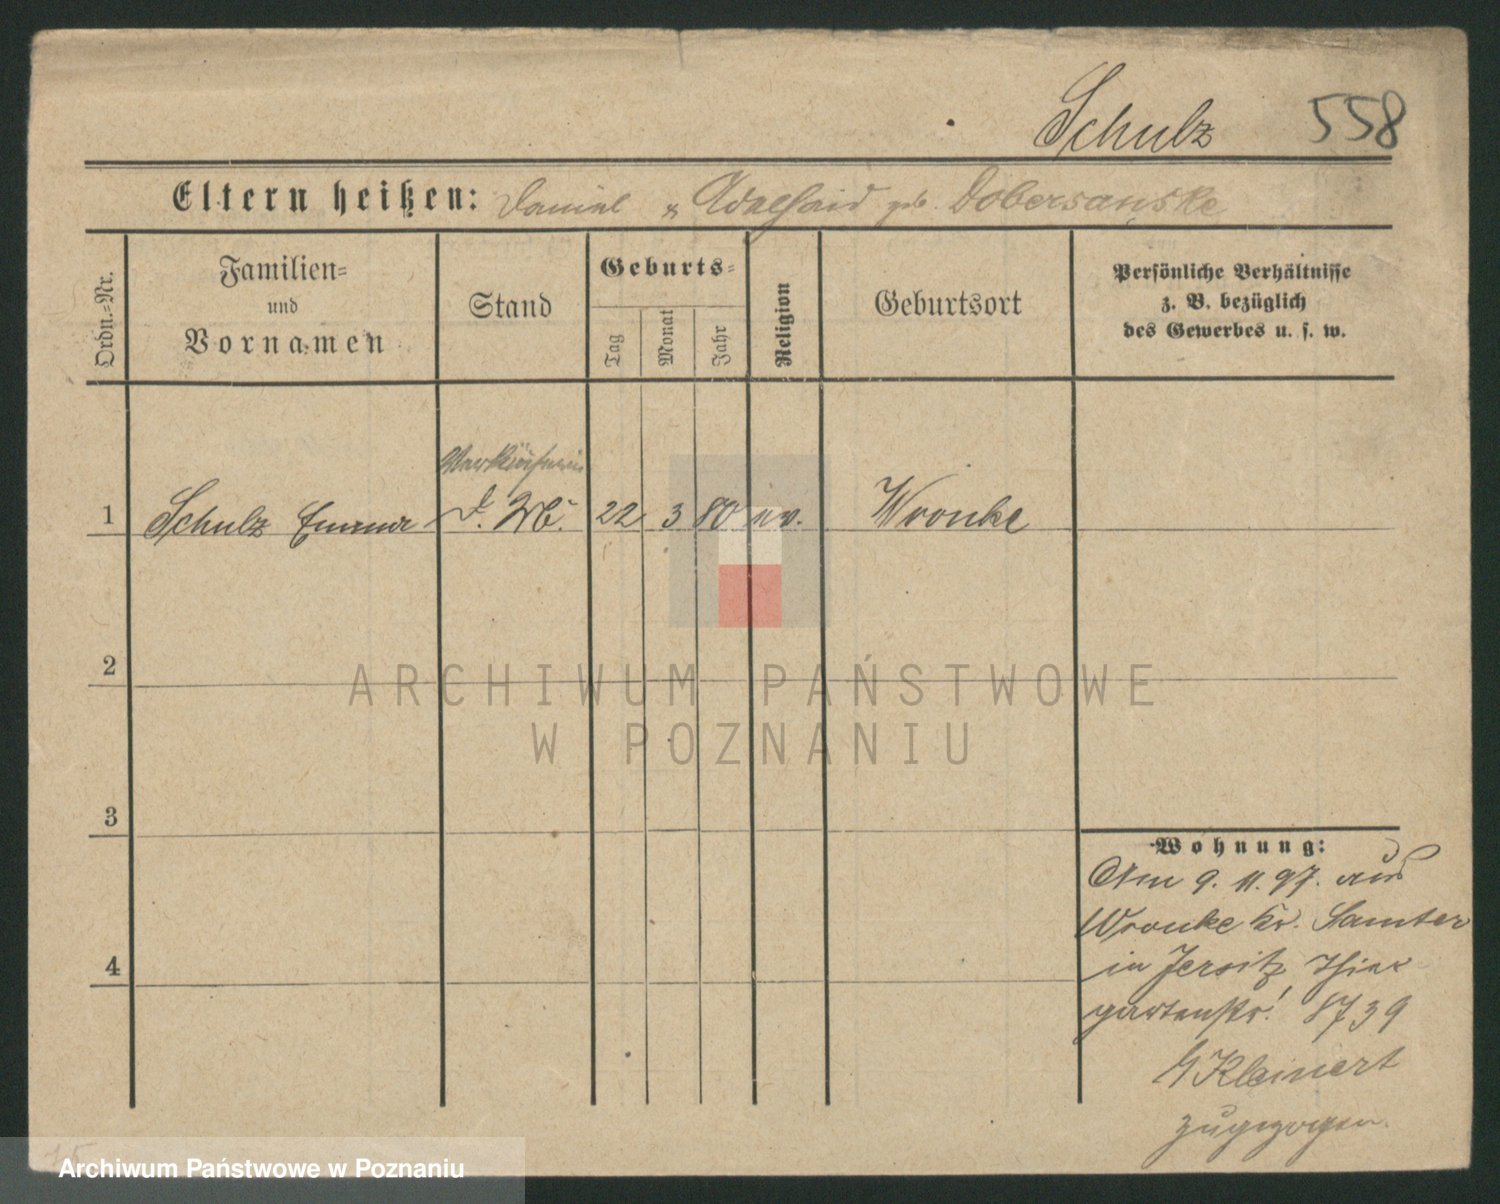 Schulz 558
Eltern heißen: Daniel u Adelheid geb. Dobersanske
Ordn.-Nr.
Familien-
und
Vornamen
Stand
Geburts-
Tag
Monat
Jahr
Religion
Geburtsort
Persönliche Verhältnisse
z. B. bezüglich
des Gewerbes u. s. w.
Verkäuferin
1 Schulz Emma d. Mb. 22 3 80 ev. Wronke
2
ARCHIWUM PAŃSTWOWE
W POZNANIU
3
Wohnung:
Am 9. 11. 97. aus
Wronke Kr. Samter
4
in Jersitz Thier
gartenstr.
b/ Kleinert
zugezogen.
Archiwum Państwowe w Poznaniu